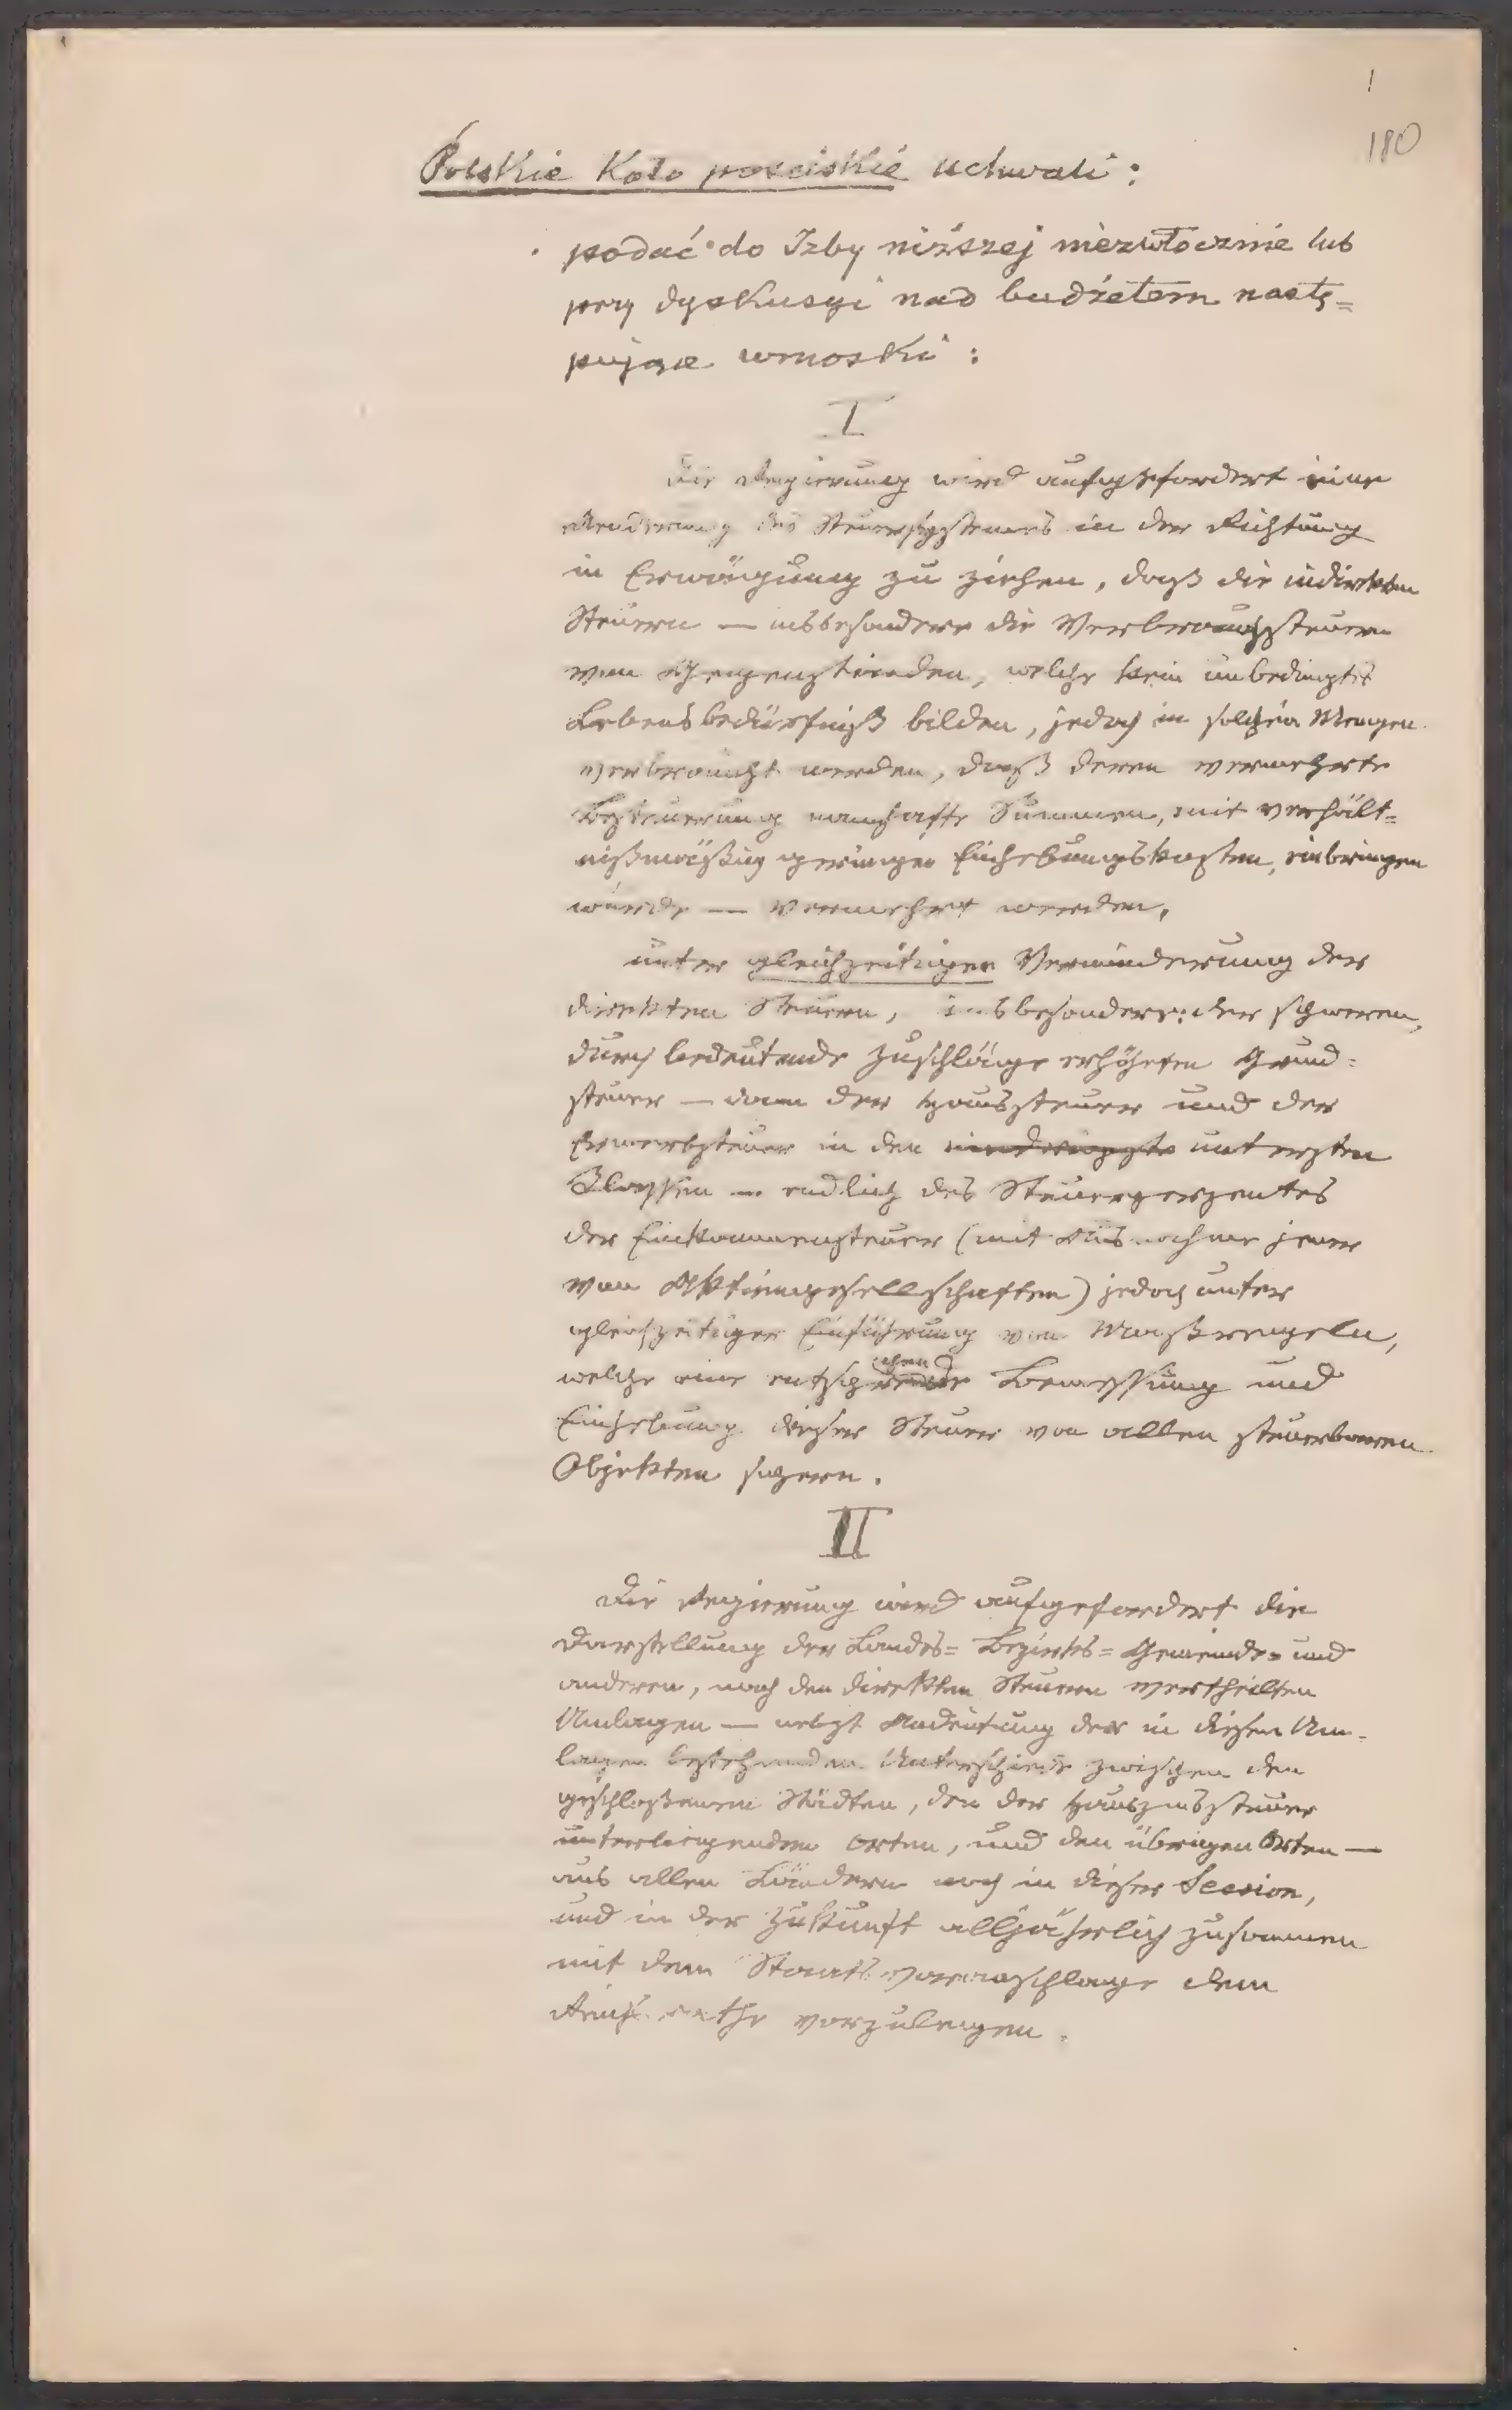 1
180
Polskie Koło poselskie uchwali:
podać do Izby niższej niezwłocznie lub
przy dyskusyi nad budżetem nastę=
pujące wnioski:
I
Die Regierung wird aufgefordert eine
Aenderung des Steuersystemes in der Richtung
in Erwägung zu ziehen, daß die indirekten
Steuern — insbesondere die Verbrauchssteuern
von Gegenständen, welche kein unbedingtes
Lebensbedürfniß bilden, jedoch in solchen Mengen
verbraucht werden, daß deren vermehrte
Besteuerung namhafte Summen, mit verhält=
nißmäßig geringen Einhebungskosten, einbringen
würde — vermehrt werden,
unter gleichzeitiger Verminderung der
direkten Steuern, insbesondere: der schweren,
durch bedeutende Zuschläge erhöhten Grund=
steuer — dann der Haussteuer und der
Erwerbsteuer in den untersten
Klassen — endlich des Steuerperzentes
der Einkommensteuer (mit Ausnahme jener
von Aktiengesellschaften) jedoch unter
gleichzeitiger Einführung von Maßregeln,
welche eine Bemessung und
Einhebung dieser Steuer von allen steuerbaren
Objekten sichern.
II
Die Regierung wird aufgefordert die
Darstellung der Landes= Bezirks= Gemeinde= und
anderen, nach den direkten Steuern vertheilten
Umlagen — nebst Andeutung der in diesen Um=
lagen bestehenden Unterschiede zwischen den
geschlossenen Städten, den der Hauszinssteuer
unterliegenden Orten, und den übrigen Orten —
aus allen Ländern noch in dieser Session,
und in der Zukunft alljährlich zusammen
mit dem Staatsvoranschlage dem
Reichsrathe vorzulegen.